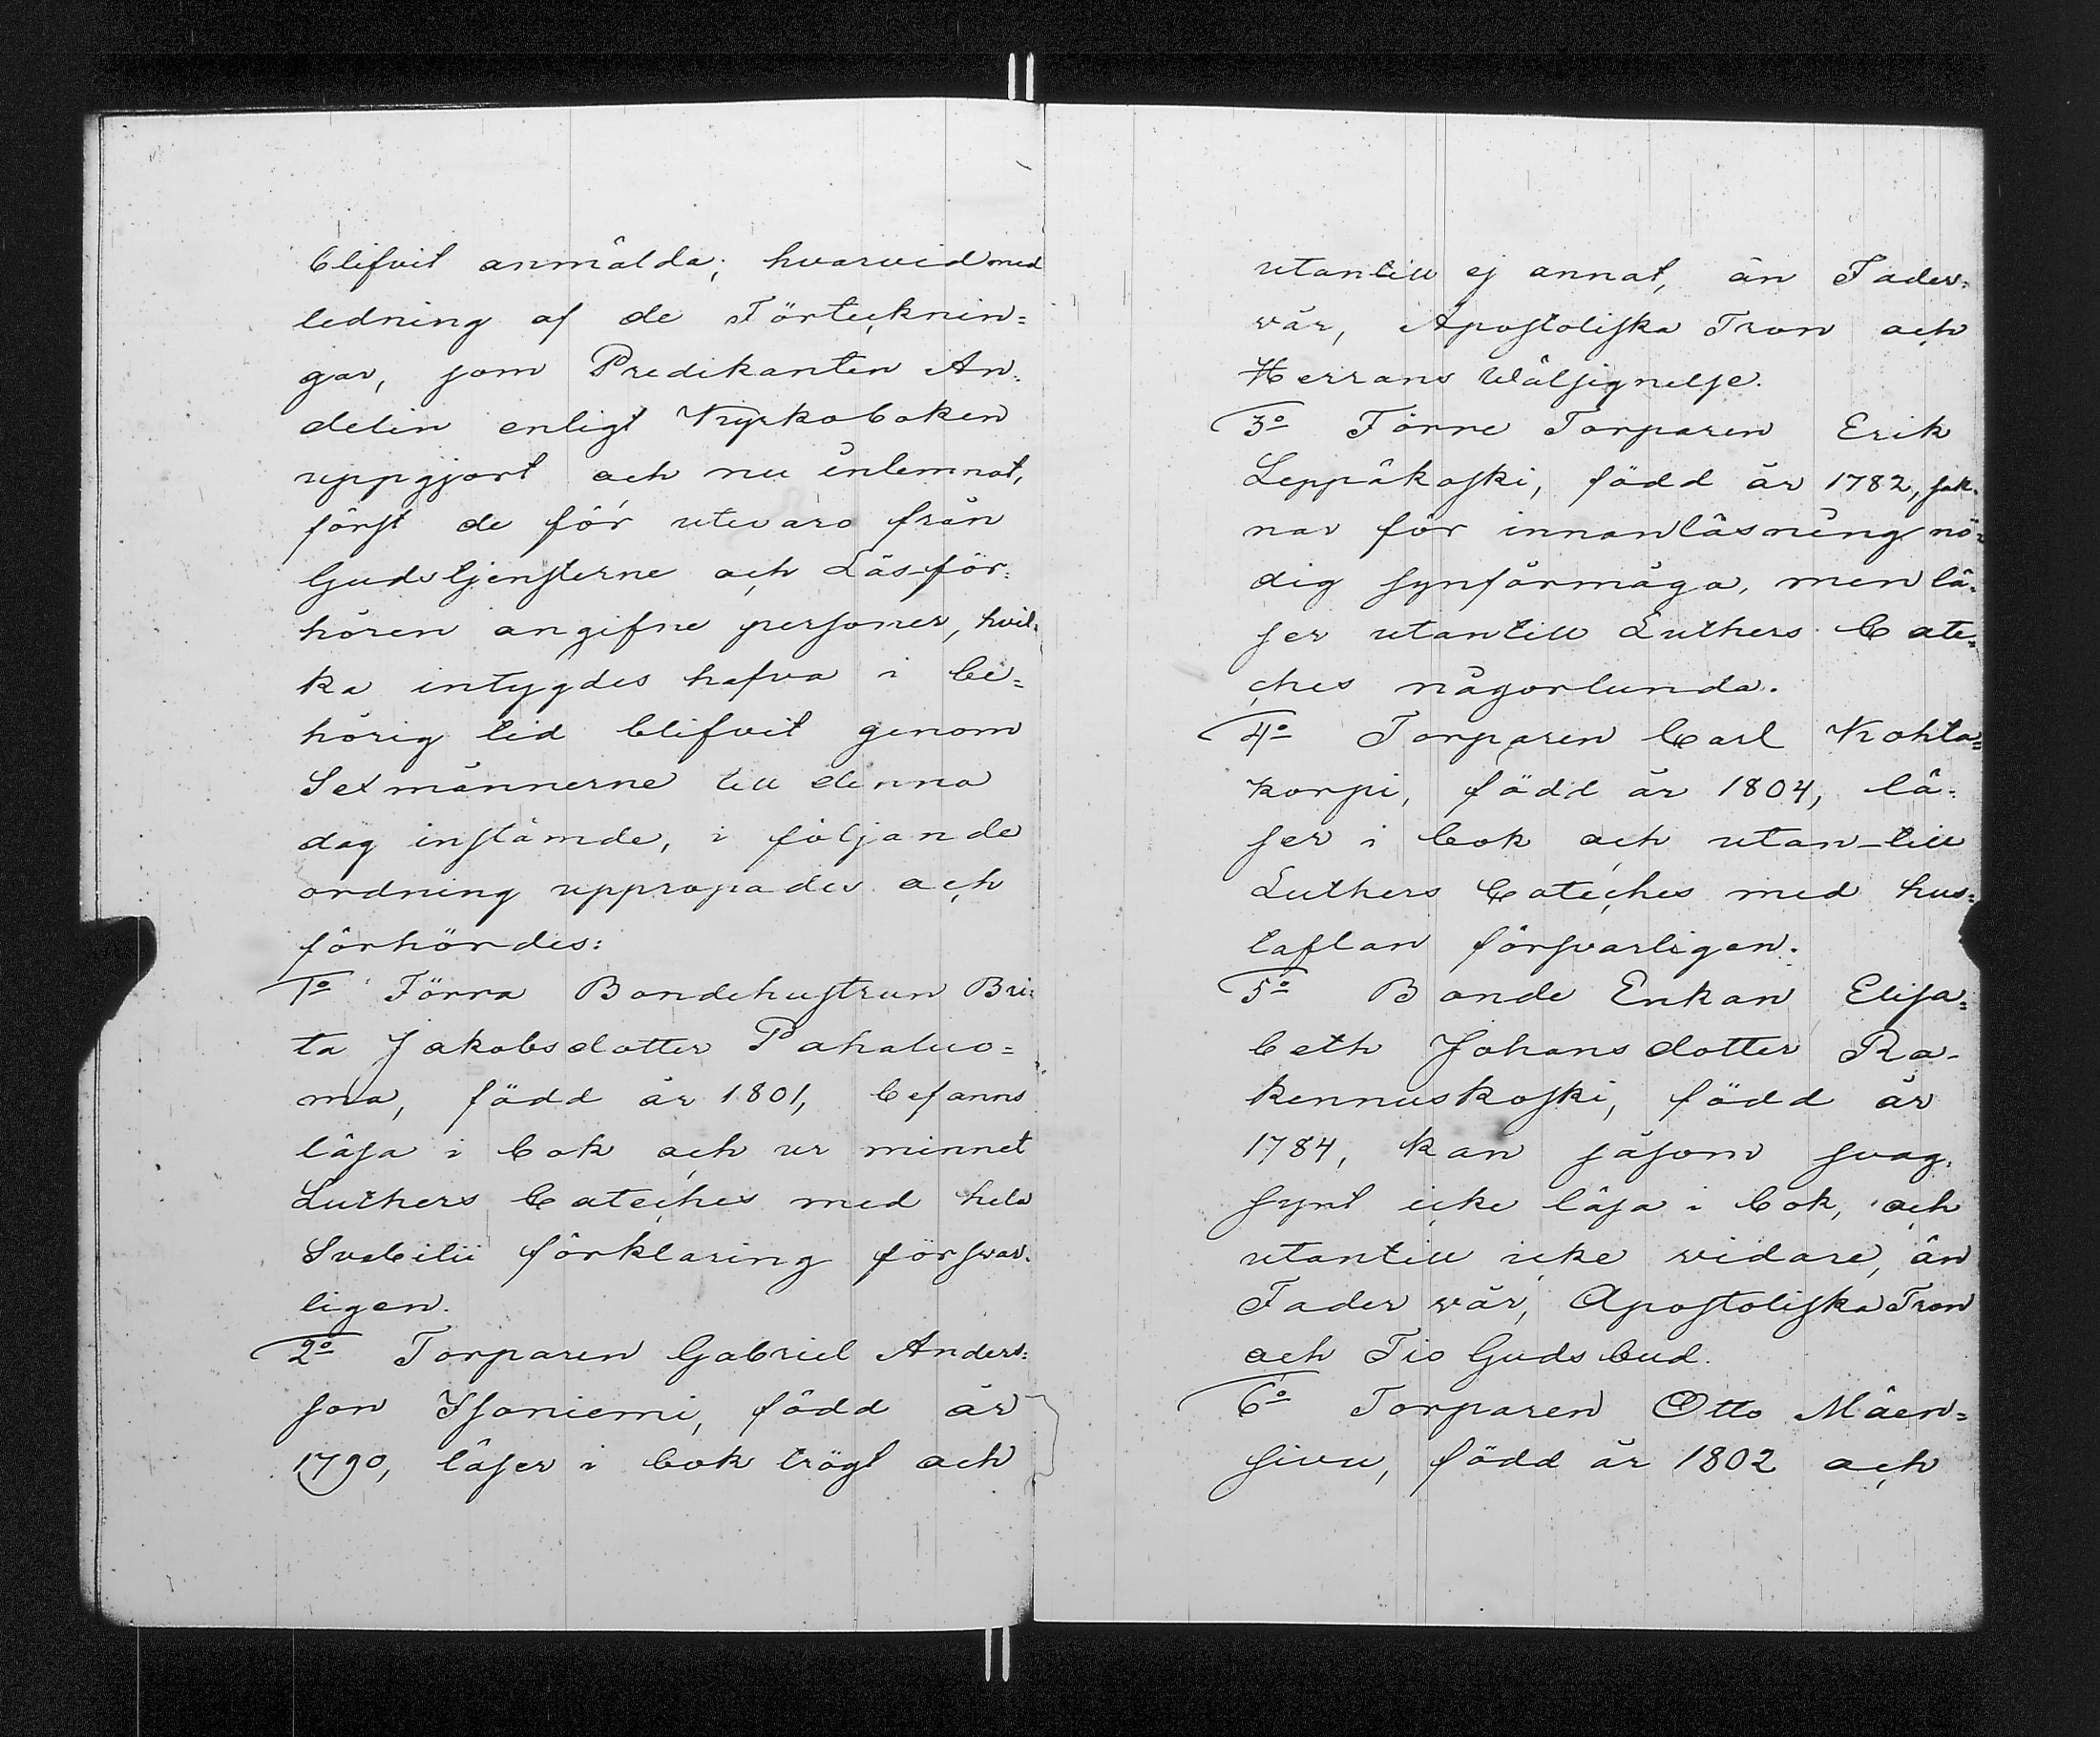 blifvit anmälda; hvarvid med
ledning af de Förtecknin=
gar, som Predikanten An=
delin enligt Kyrkoboken
uppgjort och nu inlemnat,
först de för utevaro från
Gudstjensterne och Läs-för=
hören angifne personer, hvil=
ka intygdes hafva i be=
hörig tid blifvit genom
Sexmännerne till denna
dag instämde, i följande
ordning uppropades och
förhördes:
1o Förra Bondehustrun Bri=
ta Jakobsdotter Pahaluo=
ma, född år 1801, befanns
läsa i bok och ur minnet
Luthers Cateches med hela
Svebilii förklaring försvar=
ligen.
2o Torparen Gabriel Anders=
son Isoniemi, född år
1790, läser i bok trögt och
utantill ej annat, än Fader=
vår, Apostoliska Tron och
Herrans Wälsignelse.
3o Förre Torparen Erik
Leppäkoski, född år 1782, sak=
nar för innanläsning nö=
dig synförmåga, men lä=
ser utantill Luthers Cate=
ches någorlunda.
4o Torparen Carl Kohta=
korpi, född år 1804, lä=
ser i bok och utan-till
Luthers Cateches med hus=
taflan försvarligen.
5o Bonde Enkan Elisa=
beth Johansdotter Ra-
kennuskoski, född år
1784, kan såsom svag=
synt icke läsa i bok, och
utantill icke vidare, än
Fader vår, Apostoliska Tron
och Tio Guds bud.
6o Torparen Otto Mäen=
sivu, född år 1802 och